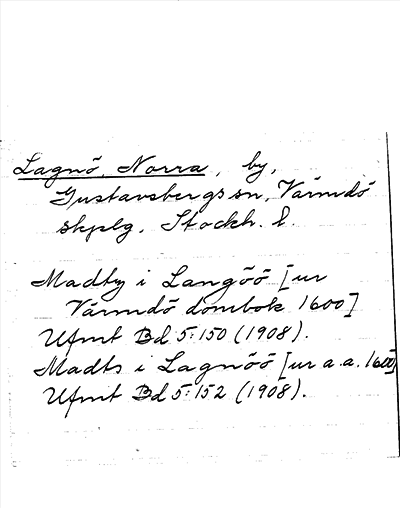 Lagnö, Norra, by,
Gustavsbergs sn, Värmdö
skplg, Stockh. l.
Madby i Langöö [ur
Värmdö dombok 1600]
Ufmt Bd 5:150 (1908).
Madts i Lagnöö [ur a.a. 1600]
Ufmt Bd 5:152 (1908).